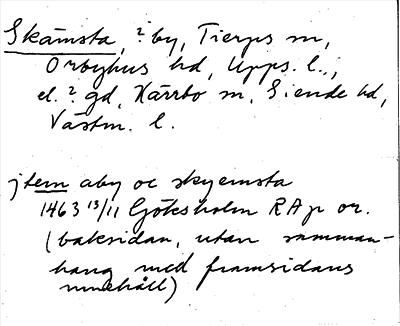 Skämsta, ? by, Tierps sn,
Örbyhus hd, Upps. l.,
el. ? gd, Kärrbo sn, Siende hd,
Västm. l.
jtem aby oc skyemsta
1463 13/11 Göksholm RAp or.
(baksidan, utan samman-
hang med framsidans
innehåll)